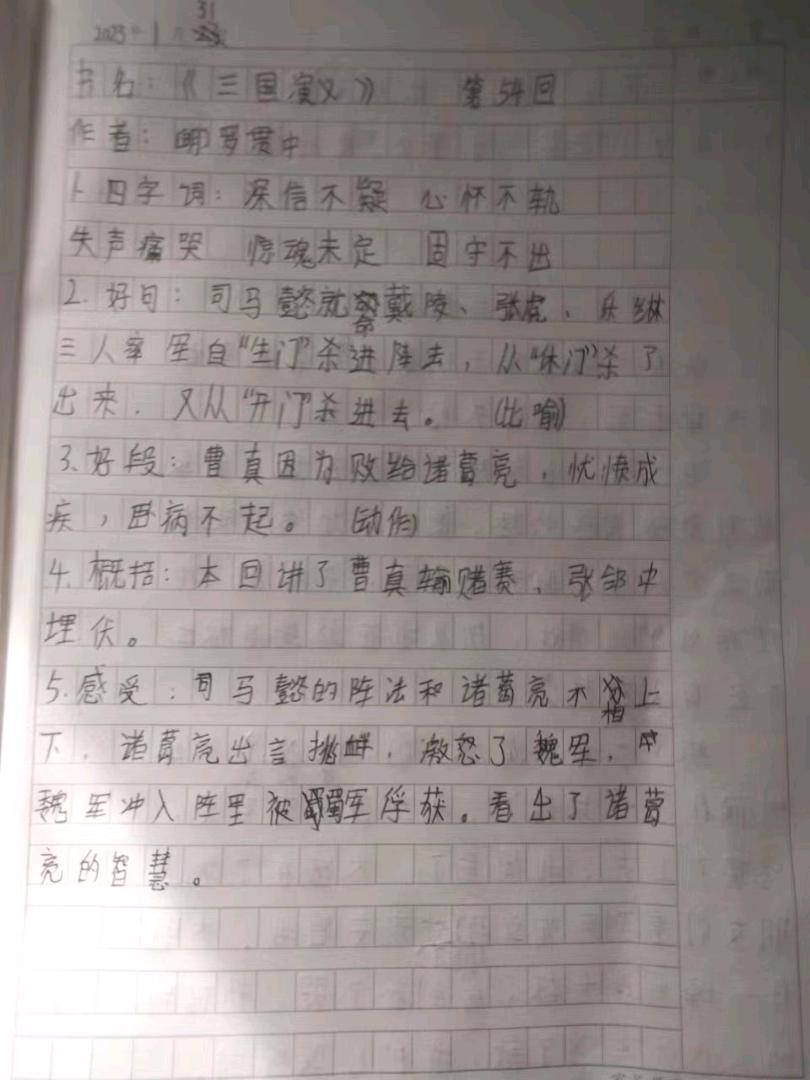 2023年1月31
书名：《三国演义》 第54回
作者：(明)罗贯中
1.四字词：深信不疑 心怀不轨
失声痛哭 惊魂未定 固守不出
2.好句：司马懿就命戴陵、张虎、乐綝
三人率军自“生门”杀进阵去，从“休门”杀了
出来，又从“开门”杀进去。(比喻)
3.好段：曹真因为败给诸葛亮，忧愤成
疾，卧病不起。(动作)
4.概括：本回讲了曹真输赌赛，张郃中
埋伏。
5.感受：司马懿的阵法和诸葛亮不相上
下，诸葛亮出言挑衅，激怒了魏军，
魏军冲入阵里被蜀军俘获。看出了诸葛
亮的智慧。